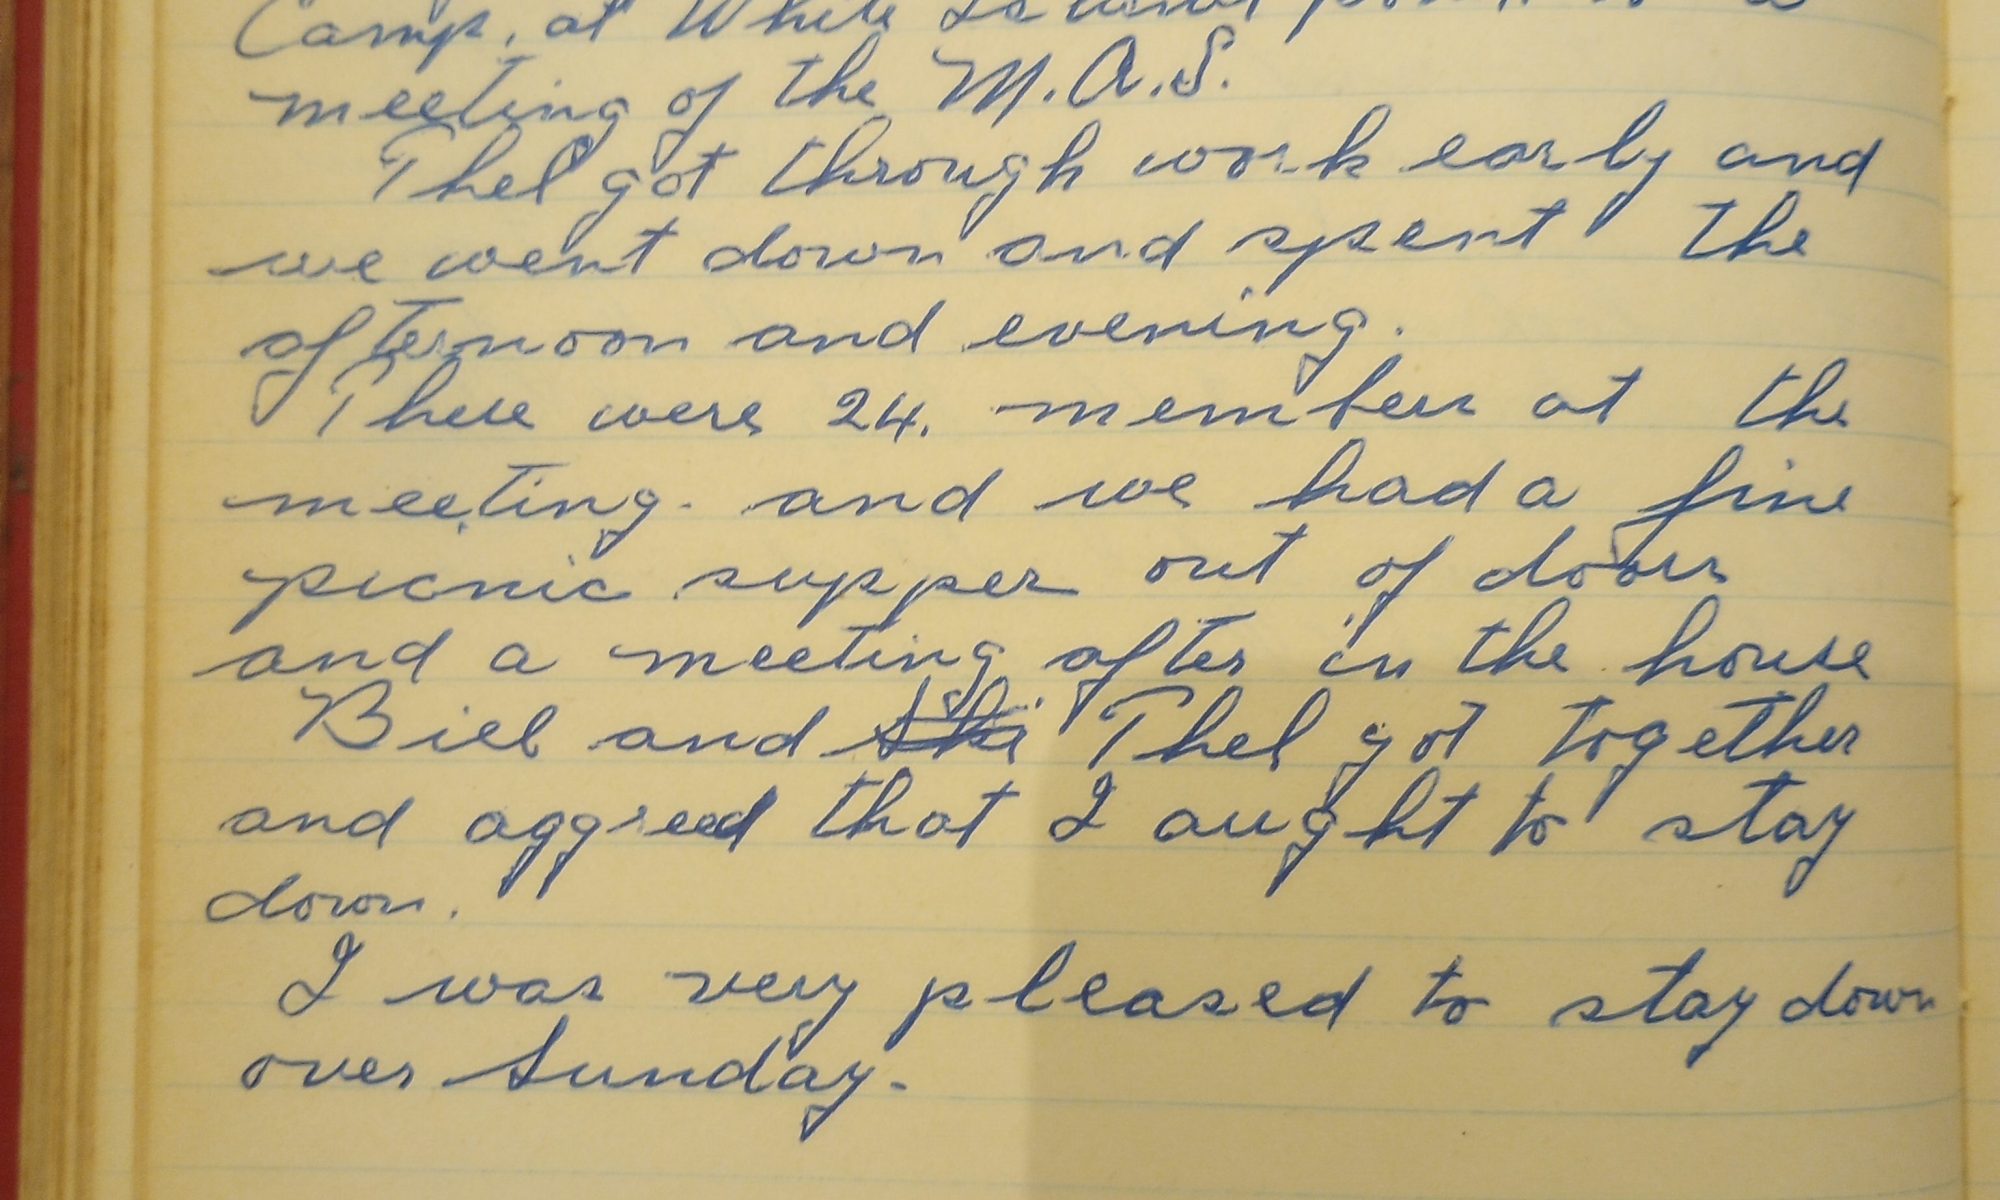 Camp, at White Island pond to a
meeting of the M.A.S.
Thel got through work early and
we went down and spent the
afternoon and evening.
There were 24. members at the
meeting. and we had a fine
picnic supper out of doors
and a meeting after in the house
Bill and She Thel got together
and aggreed that I aught to stay
down.
I was very pleased to stay down
over Sunday.